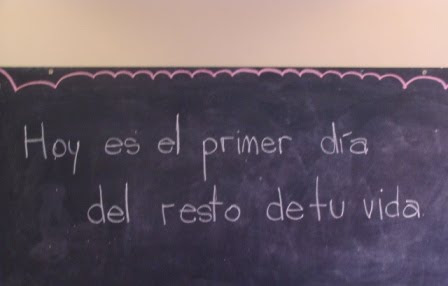 Hoy es el primer día
del resto de tu vida